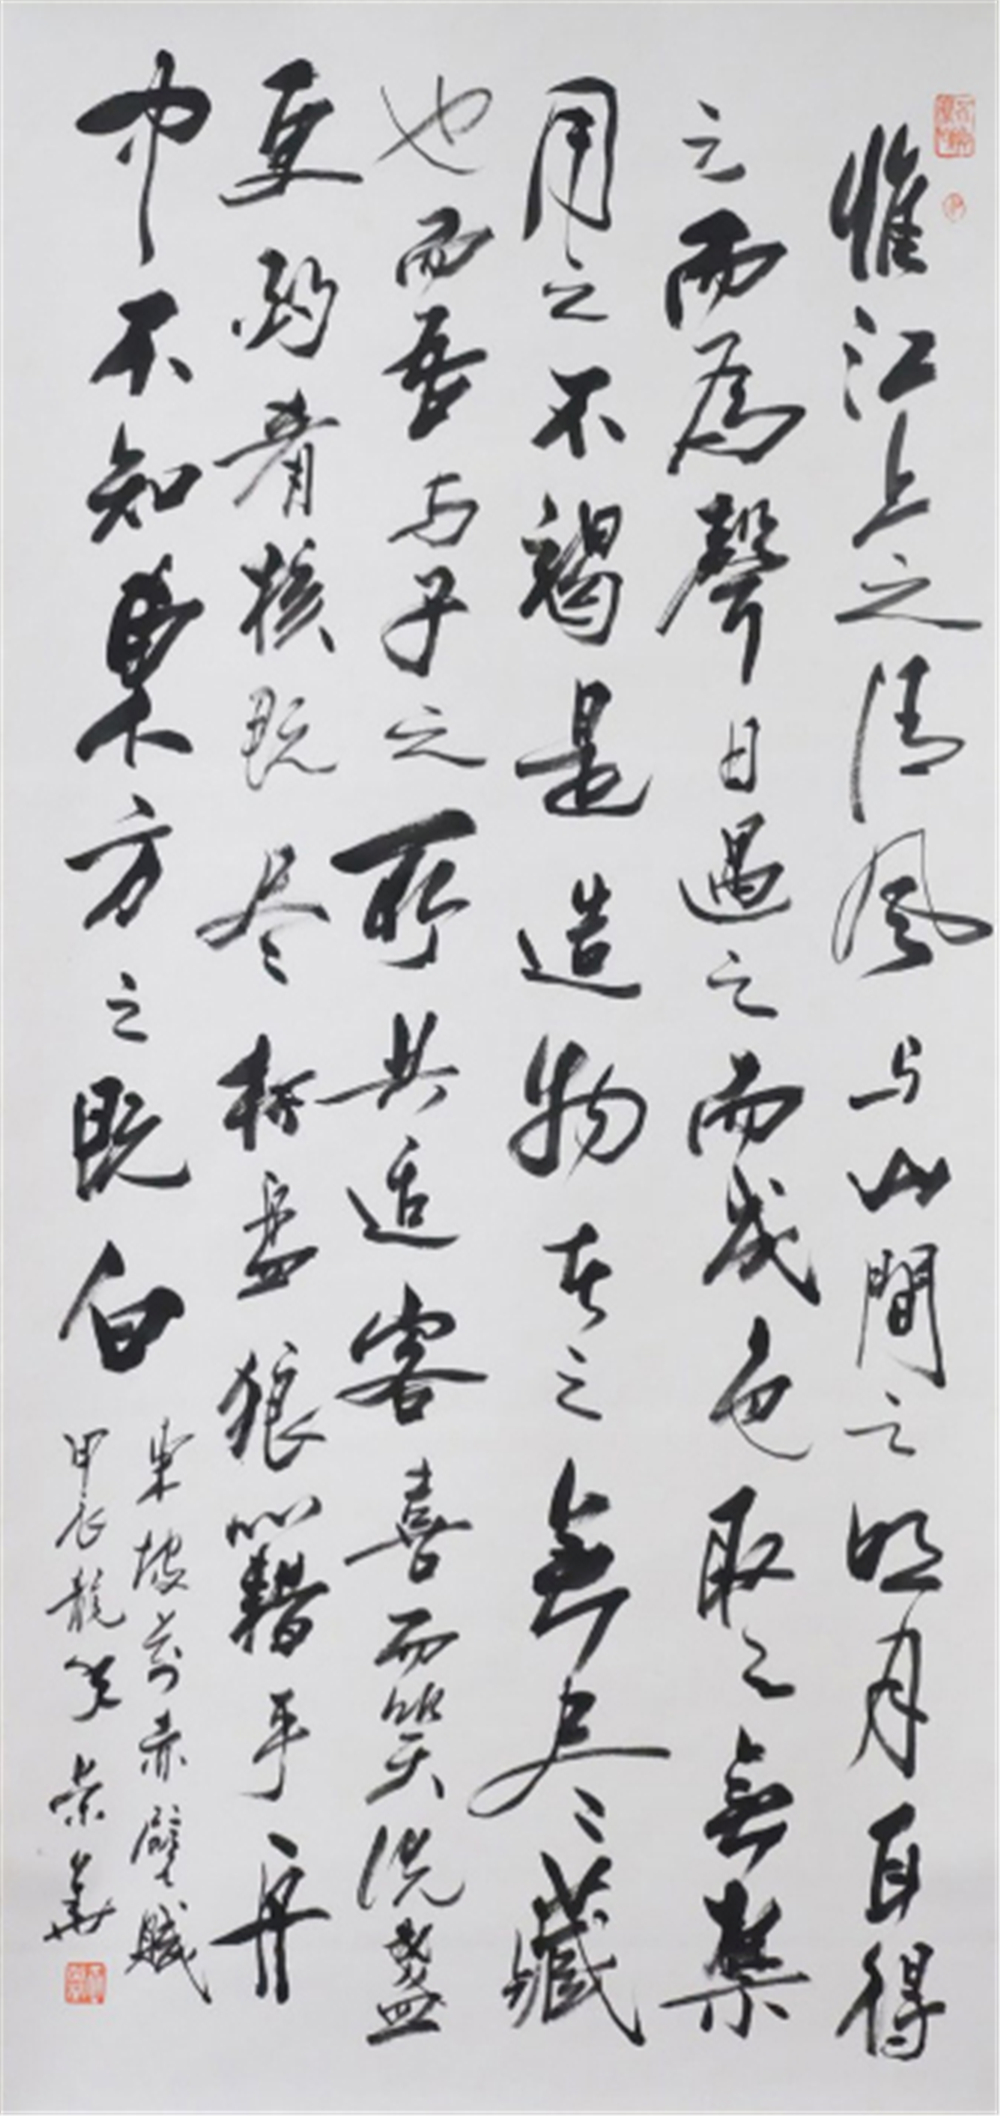 惟江上之清风与山間之明月耳得
之而為聲目遇之而成色取之無禁
用之不竭是造物者之無尽藏
也而吾与子之所共适客喜而笑洗盏
更酌肴核既尽杯盘狼籍乎舟
中不知東方之既白
東坡前赤壁賦
甲辰龍年荣華